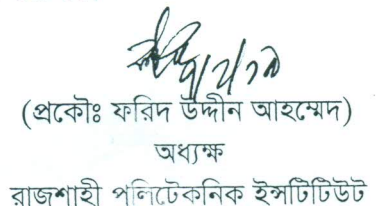 (প্রকৌঃ ফরিদ উদ্দীন আহম্মেদ)
অধ্যক্ষ
রাজশাহী পলিটেকনিক ইন্সটিটিউট